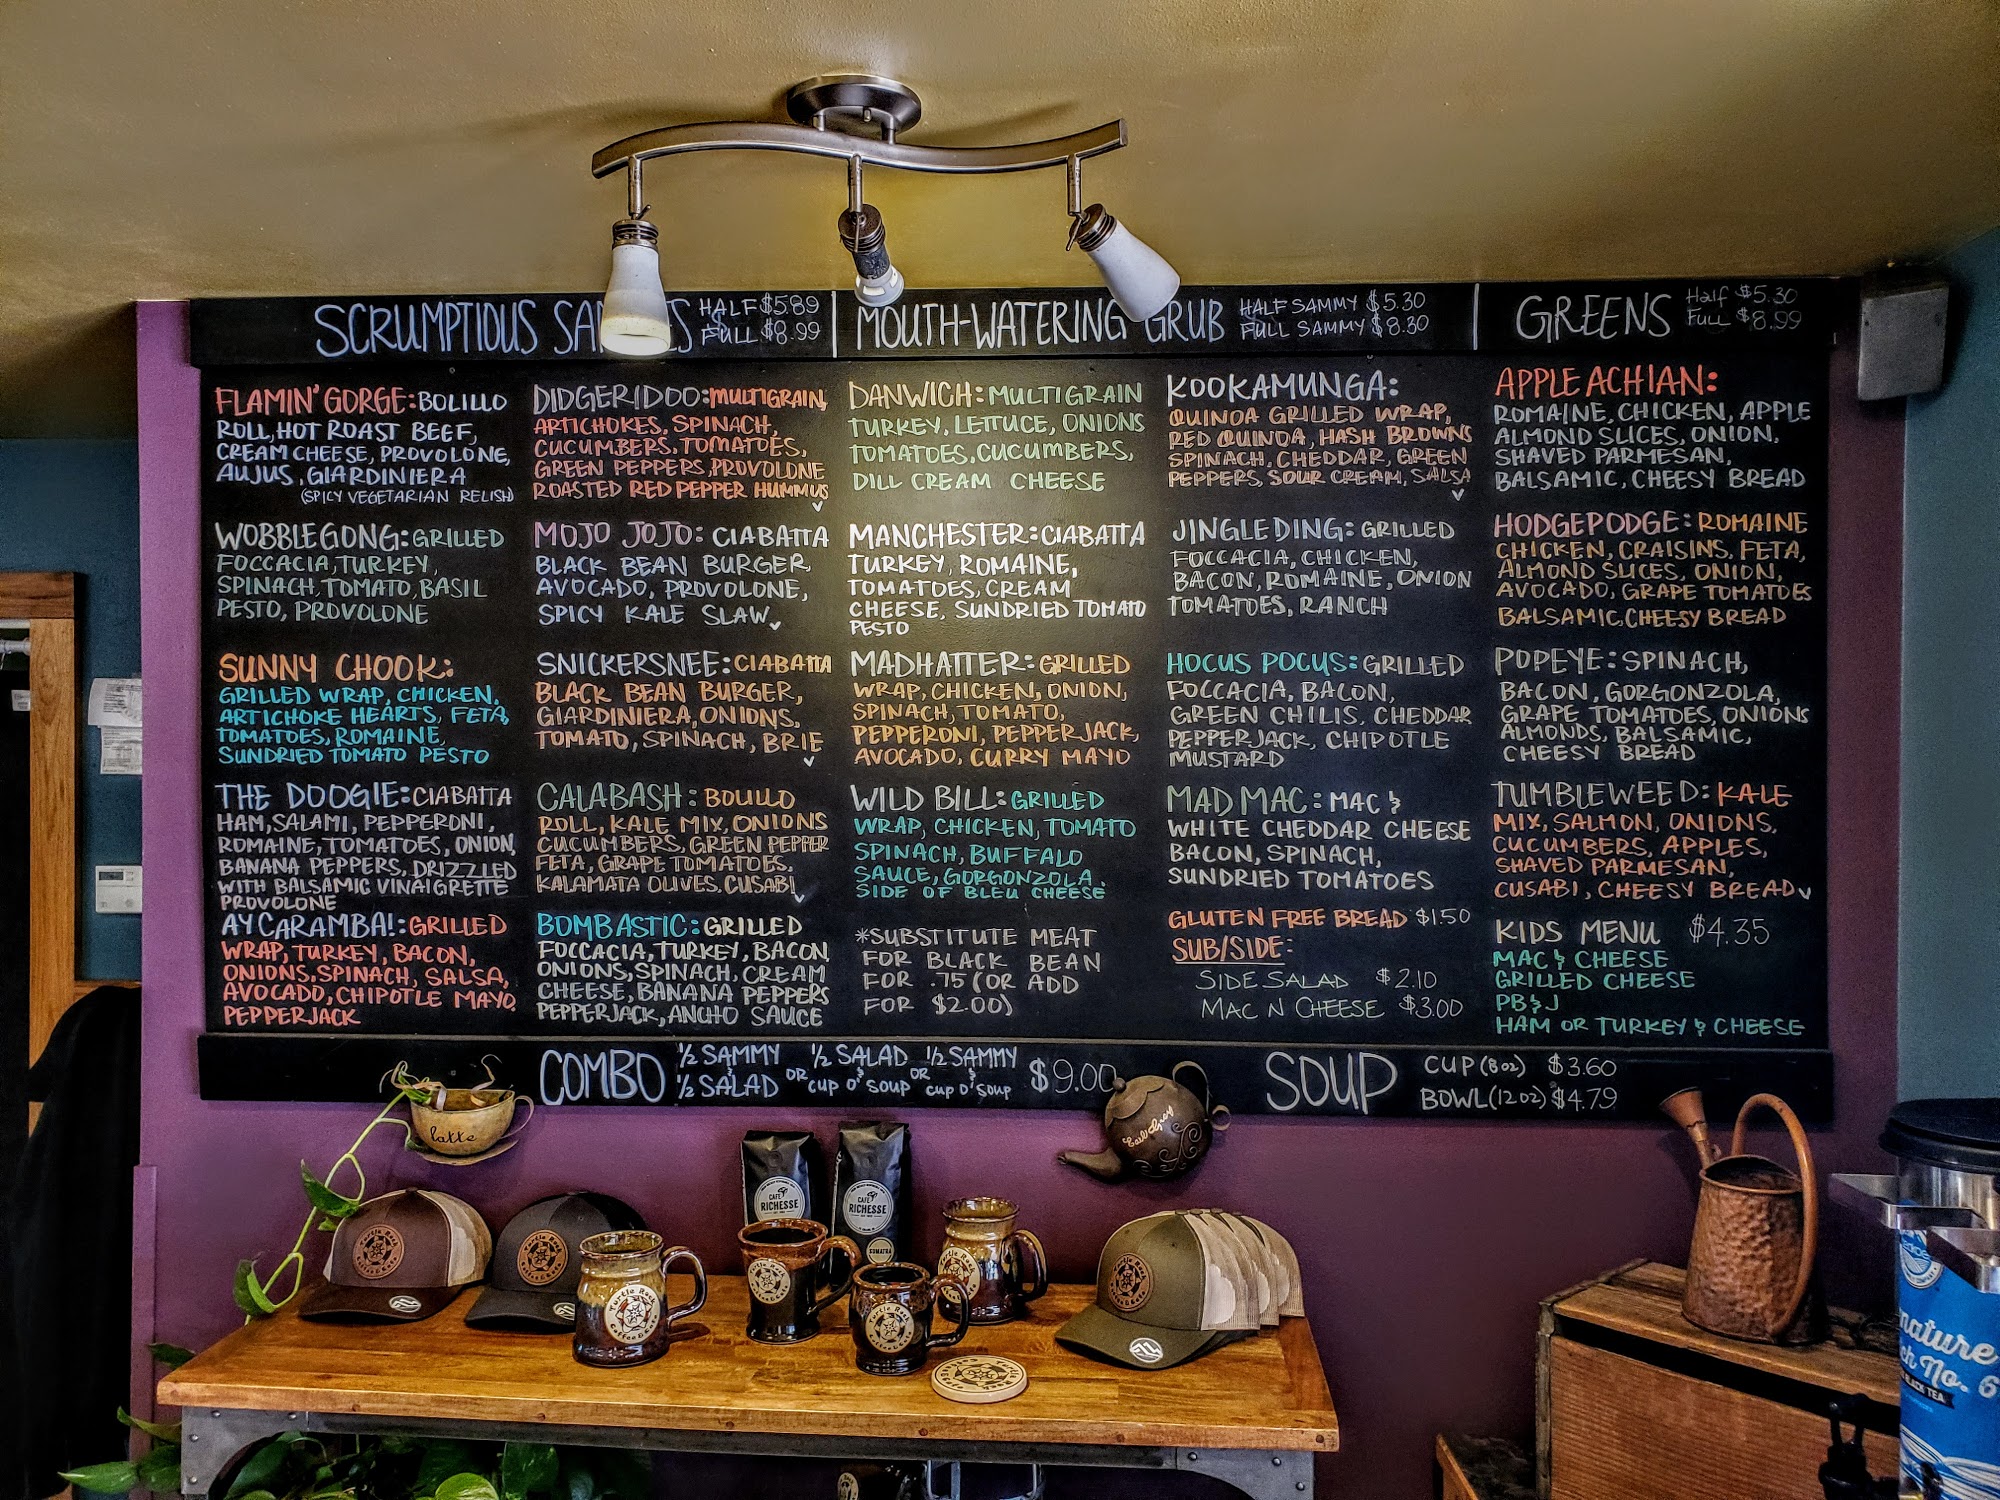 SCRUMPTIOUS
HALF $5.89
FULL $8.99
MOUTH-WATERING GRUB
HALF SAMMY $5.30
FULL SAMMY $8.30
GREENS
Half $5.30
FULL $8.99
FLAMIN' GORGE: BOLILLO
ROLL, HOT ROAST BEEF,
CREAM CHEESE, PROVOLONE,
AUJUS, GIARDINIERA
(SPICY VEGETARIAN RELISH)
WOBBLEGONG: GRILLED
FOCCACIA, TURKEY,
SPINACH, TOMATO, BASIL
PESTO, PROVOLONE
SUNNY CHOOK:
GRILLED WRAP, CHICKEN,
ARTICHOKE HEARTS, FETA,
TOMATOES, ROMAINE,
SUNDRIED TOMATO PESTO
THE DOOGIE: CIABATTA
HAM, SALAMI, PEPPERONI,
ROMAINE, TOMATOES, ONION,
BANANA PEPPERS, DRIZZLED
WITH BALSAMIC VINAIGRETTE
PROVOLONE
AY CARAMBA!: GRILLED
WRAP, TURKEY, BACON,
ONIONS, SPINACH, SALSA,
AVOCADO, CHIPOTLE MAYO,
PEPPERJACK
DIDGERIDOO: MULTIGRAIN,
ARTICHOKES, SPINACH,
CUCUMBERS, TOMATOES,
GREEN PEPPERS, PROVOLONE
ROASTED RED PEPPER HUMMUS
MOJO JOJO: CIABATTA
BLACK BEAN BURGER,
AVOCADO, PROVOLONE,
SPICY KALE SLAW
SNICKERSNEE: CIABATTA
BLACK BEAN BURGER,
GIARDINIERA, ONIONS,
TOMATO, SPINACH, BRIE
CALABASH: BOLILLO
ROLL, KALE MIX, ONIONS
CUCUMBERS, GREEN PEPPER
FETA, GRAPE TOMATOES,
KALAMATA OLIVES, CUSABI
BOMBASTIC: GRILLED
FOCCACIA, TURKEY, BACON,
ONIONS, SPINACH, CREAM
CHEESE, BANANA PEPPERS
PEPPERJACK, ANCHO SAUCE
DANWICH: MULTIGRAIN
TURKEY, LETTUCE, ONIONS
TOMATOES, CUCUMBERS,
DILL CREAM CHEESE
MANCHESTER: CIABATTA
TURKEY, ROMAINE,
TOMATOES, CREAM
CHEESE, SUNDRIED TOMATO
PESTO
MADHATTER: GRILLED
WRAP, CHICKEN, ONION,
SPINACH, TOMATO,
PEPPERONI, PEPPERJACK,
AVOCADO, CURRY MAYO
WILD BILL: GRILLED
WRAP, CHICKEN, TOMATO
SPINACH, BUFFALO
SAUCE, GORGONZOLA,
SIDE OF BLEU CHEESE
*SUBSTITUTE MEAT
FOR BLACK BEAN
FOR .75 (OR ADD
FOR $2.00)
KOOKAMUNGA:
QUINOA GRILLED WRAP,
RED QUINOA, HASH BROWNS
SPINACH, CHEDDAR, GREEN
PEPPERS, SOUR CREAM, SALSA
JINGLEDING: GRILLED
FOCCACIA, CHICKEN,
BACON, ROMAINE, ONION
TOMATOES, RANCH
HOCUS POCUS: GRILLED
FOCCACIA, BACON,
GREEN CHILIS, CHEDDAR
PEPPERJACK, CHIPOTLE
MUSTARD
MAD MAC: MAC &
WHITE CHEDDAR CHEESE
BACON, SPINACH,
SUNDRIED TOMATOES
GLUTEN FREE BREAD $1.50
SUB/SIDE:
SIDE SALAD $2.10
MAC N CHEESE $3.00
APPLEACHIAN:
ROMAINE, CHICKEN, APPLE
ALMOND SLICES, ONION,
SHAVED PARMESAN,
BALSAMIC, CHEESY BREAD
HODGEPODGE: ROMAINE
CHICKEN, CRAISINS, FETA,
ALMOND SLICES, ONION,
AVOCADO, GRAPE TOMATOES
BALSAMIC, CHEESY BREAD
POPEYE: SPINACH,
BACON, GORGONZOLA,
GRAPE TOMATOES, ONIONS
ALMONDS, BALSAMIC,
CHEESY BREAD
TUMBLEWEED: KALE
MIX, SALMON, ONIONS,
CUCUMBERS, APPLES,
SHAVED PARMESAN,
CUSABI, CHEESY BREAD
KIDS MENU $4.35
MAC & CHEESE
GRILLED CHEESE
PB&J
HAM OR TURKEY & CHEESE
COMBO
1/2 SAMMY & 1/2 SALAD
OR
1/2 SALAD & CUP O' SOUP
OR
1/2 SAMMY & CUP O' SOUP
$9.00
SOUP
CUP (8oz) $3.60
BOWL (12oz) $4.79
latte
Earl Grey
CAFÉ
RICHESSE
CAFÉ
RICHESSE
SUMATRA
Turtle Rock
Coffee & Cafe
Turtle Rock
Coffee & Cafe
BLACK TEA